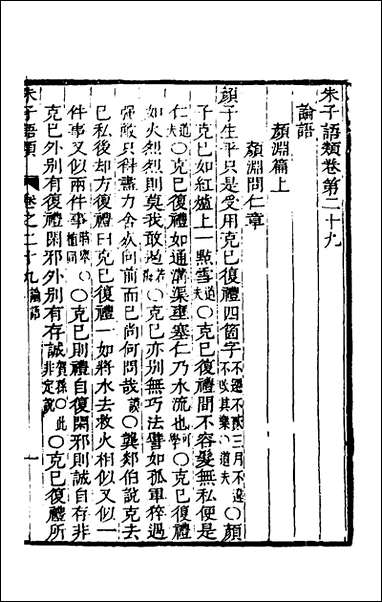 朱子語類卷第二十九
論語
顏淵篇上
顏淵問仁章
顏子生平只是受用克己復禮四箇字不遷不貳三月不違不改其樂道夫○顏
子克己如紅爐上一點雪道夫○克己復禮間不容髮無私便是
仁道夫○克己復禮如通溝渠壅塞仁乃水流也可學○克己復禮
如火烈烈則莫我敢遏○克己亦別無巧法譬如孤軍猝遇
強敵只得盡力舍死向前而已尚何問哉謨○龔郯伯說克去
己私後却方復禮曰克己復禮一如將水去救火相似又似一
件事又似兩件事○克己則禮自復閑邪則誠自存非
克己外別有復禮閑邪外別有存誠賀孫○此非定說○克己復禮所
朱子語類
卷之二十九論語
一